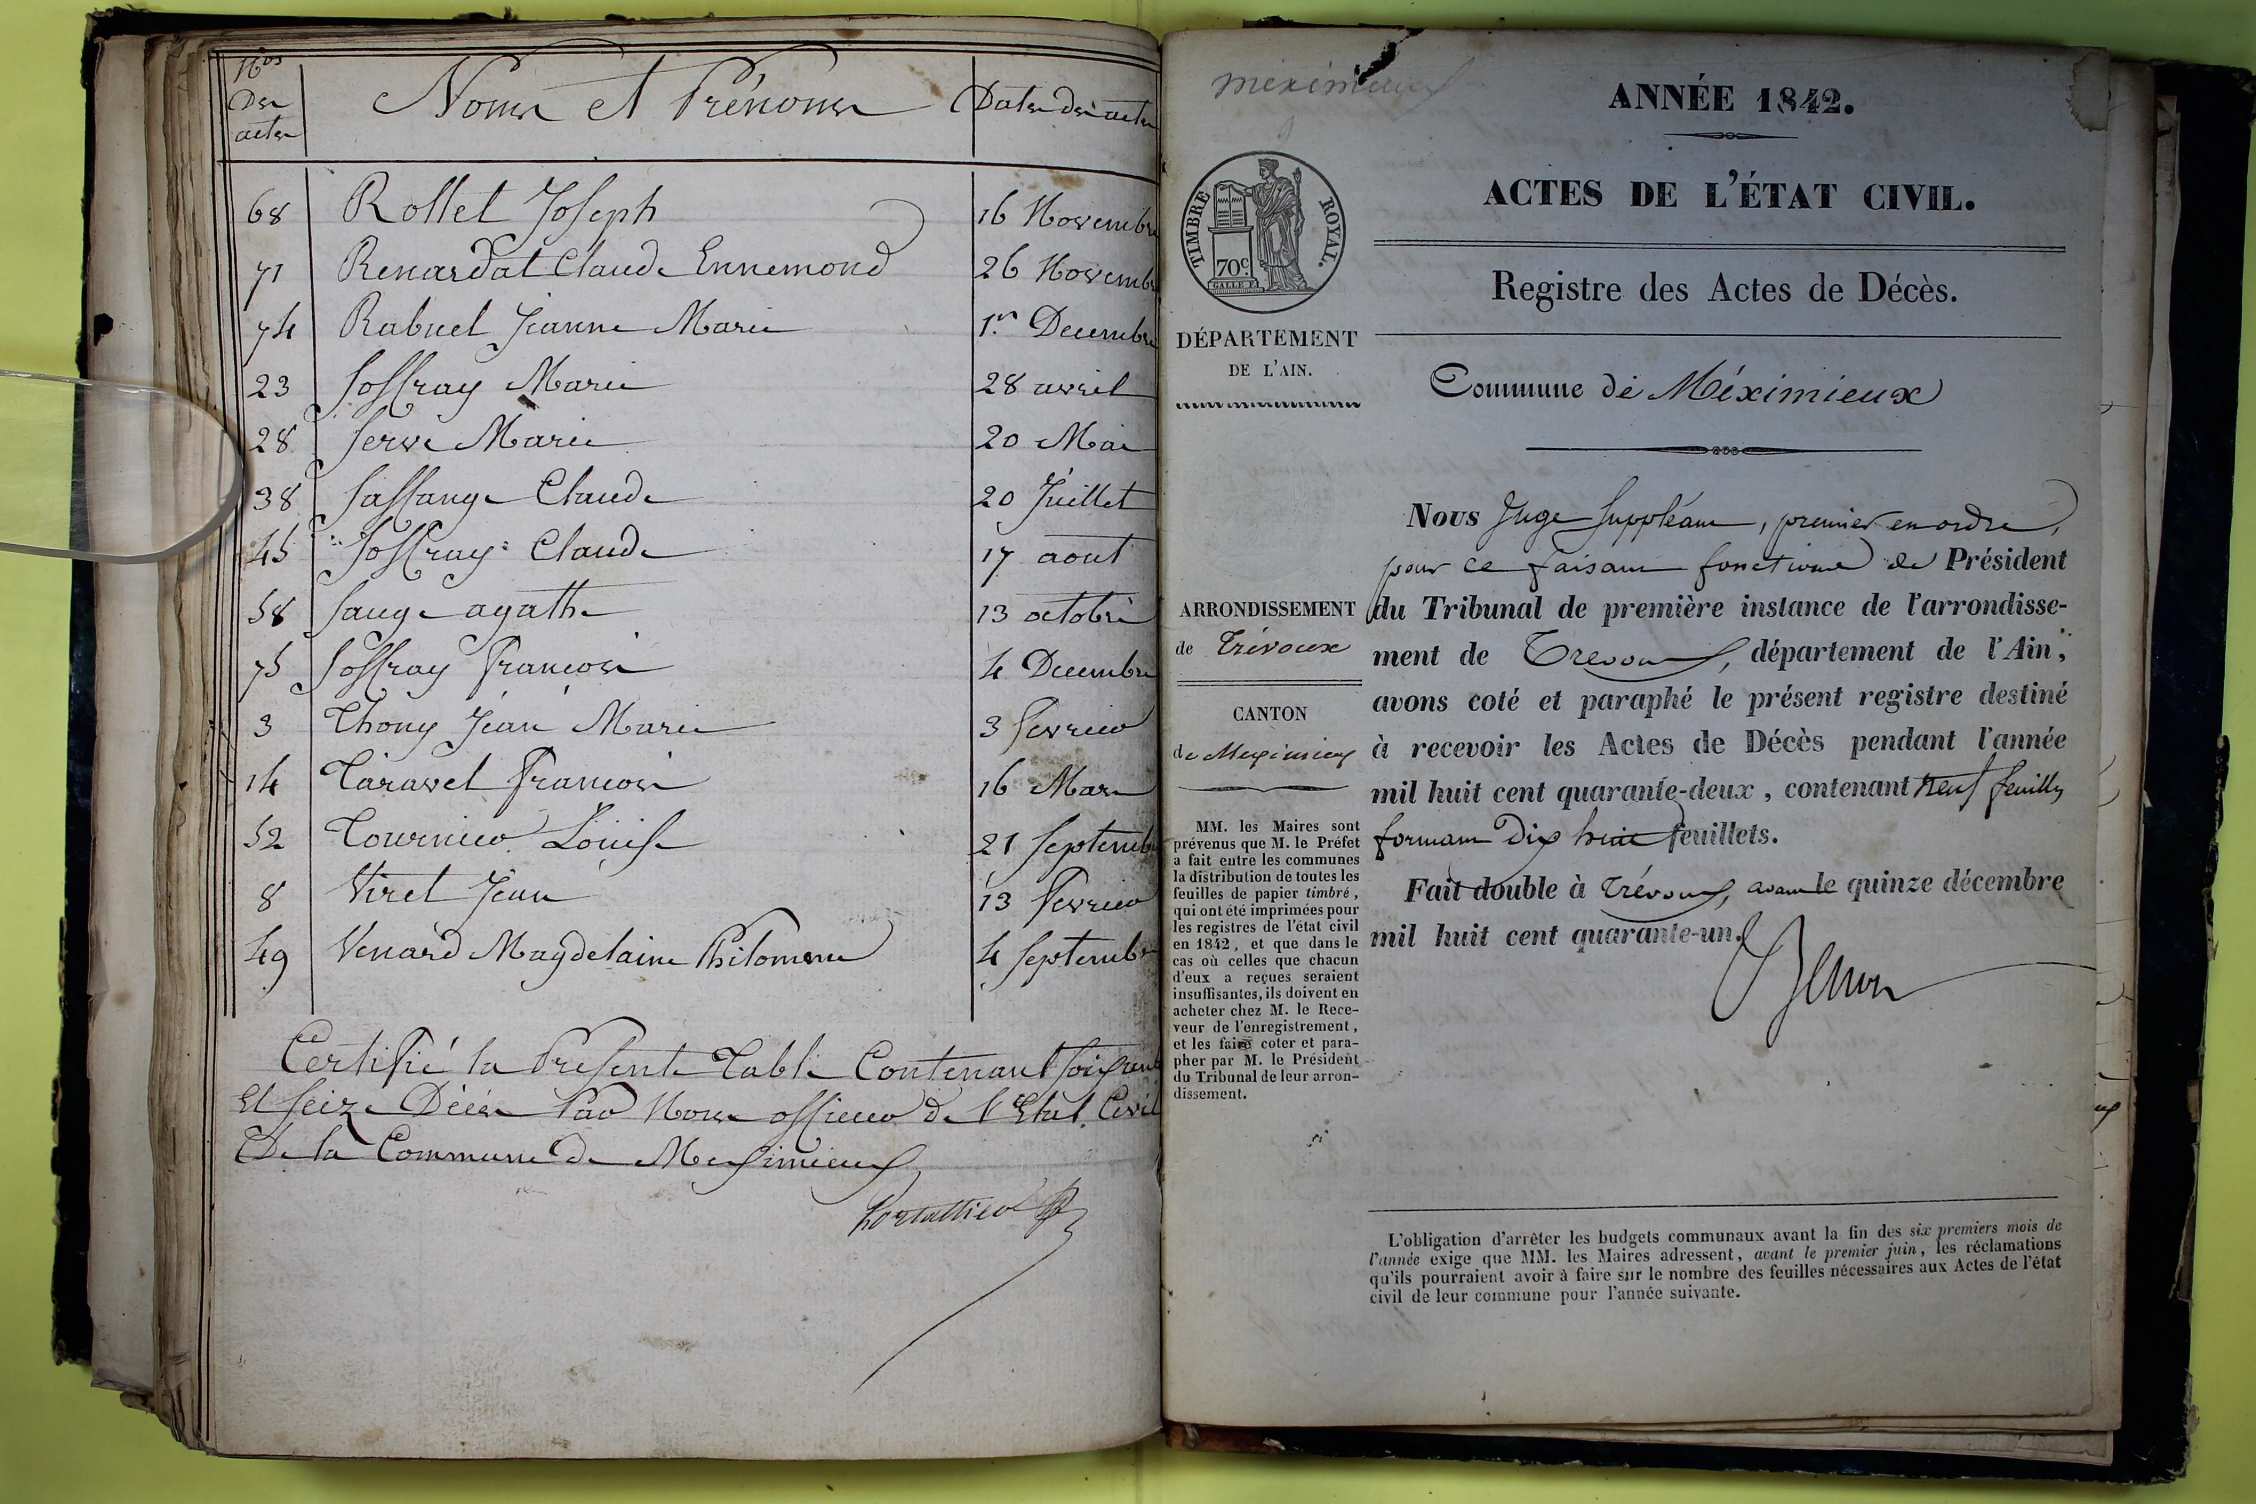 Nos
Des
actes
Noms et Prénoms
Dates des actes
68 Rollet Joseph 16 Novembre
71 Renardat Claude Ennemond 26 Novembre
74 Rabuel Jeanne Marie 1er Decembre
23 Soffray Marie 28 avril
28 Serve Marie 20 Mai
38 Sassange Claude 20 Juillet
45 Soffray Claude 17 aout
58 Sauge agathe 13 octobre
75 Soffray François 4 Decembre
3 Thony Jean Marie 3 fevrier
14 Taravel François 16 Mars
52 Tournier Louise 21 Septembre
8 Viret Jean 13 Fevrier
49 Venard Magdelaine Philomene 4 Septembre
Certifié la Presente Table Contenant soixante
Et seize Décès Par Nous officier de l'Etat Civil
De la Commune de Meximieux
Portallier
méximieux
TIMBRE ROYAL.
70c
DÉPARTEMENT
DE L'AIN.
ARRONDISSEMENT
de Trévoux
CANTON
de Meximieux
MM. les Maires sont
prévenus que M. le Préfet
a fait entre les communes
la distribution de toutes les
feuilles de papier timbré,
qui ont été imprimées pour
les registres de l'état civil
en 1842, et que dans le
cas où celles que chacun
d'eux a reçues seraient
insuffisantes, ils doivent en
acheter chez M. le Rece-
veur de l'enregistrement,
et les faire coter et para-
pher par M. le Président
du Tribunal de leur arron-
dissement.
ANNÉE 1842.
ACTES DE L'ÉTAT CIVIL.
Registre des Actes de Décès.
Commune de Méximieux
Nous Juge Suppléant, premier en ordre,
pour ce faisant fonctions de Président
du Tribunal de première instance de l'arrondisse-
ment de Trevoux, département de l'Ain,
avons coté et paraphé le présent registre destiné
à recevoir les Actes de Décès pendant l'année
mil huit cent quarante-deux, contenant neuf feuilles
formant Dix huit feuillets.
Fait double à Trévoux, avant le quinze décembre
mil huit cent quarante-un.
L'obligation d'arrêter les budgets communaux avant la fin des six premiers mois de
l'année exige que MM. les Maires adressent, avant le premier juin, les réclamations
qu'ils pourraient avoir à faire sur le nombre des feuilles nécessaires aux Actes de l'état
civil de leur commune pour l'année suivante.